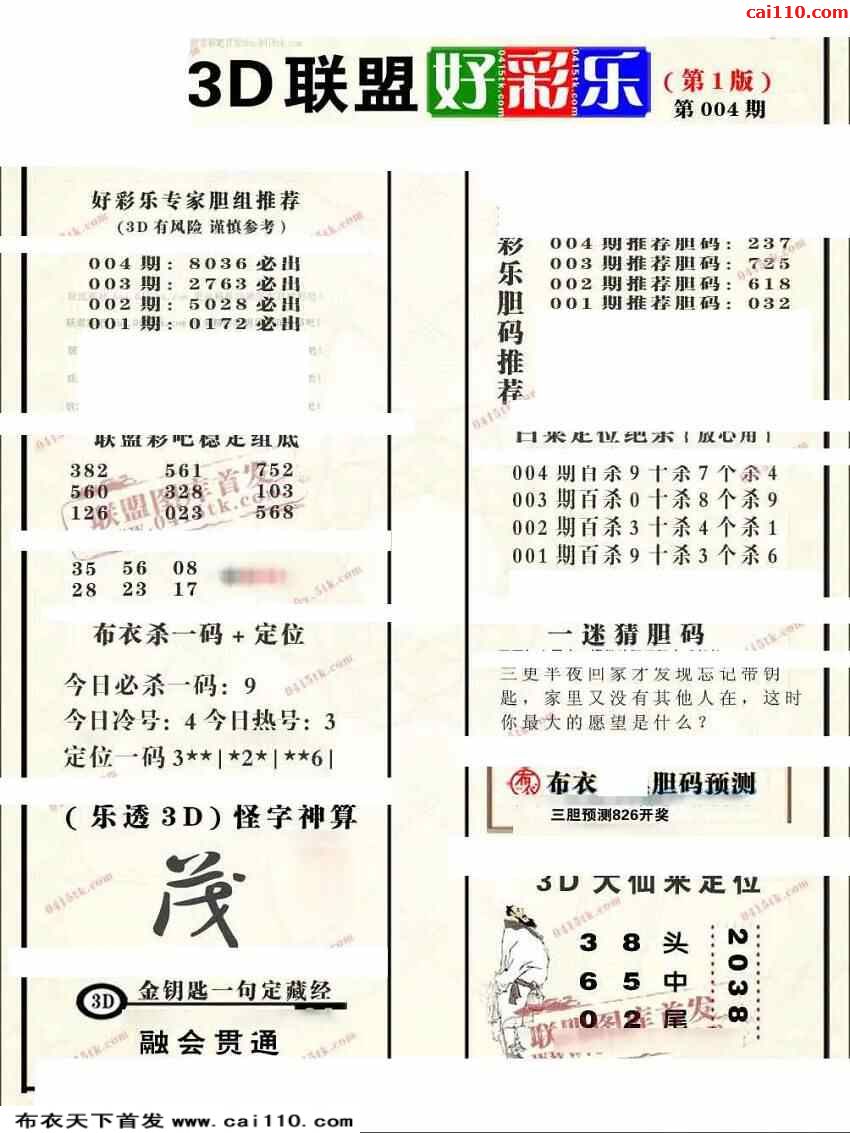 cai110.com
3D联盟好彩乐
(第1版)
第004期
好彩乐专家胆组推荐
(3D有风险 谨慎参考)
004期: 8036必出
003期: 2763必出
002期: 5028必出
001期: 0172必出
彩乐胆码推荐
004期推荐胆码: 237
003期推荐胆码: 725
002期推荐胆码: 618
001期推荐胆码: 032
联盟彩吧稳定组底
382 561 752
560 328 103
126 023 568
联盟图库首发
35 56 08
28 23 17
定位绝杀(放心用)
004期百杀9十杀7个杀4
003期百杀0十杀8个杀9
002期百杀3十杀4个杀1
001期百杀9十杀3个杀6
布衣杀一码+定位
今日必杀一码: 9
今日冷号: 4 今日热号: 3
定位一码 3**|*2*|**6|
一迷猜胆码
三更半夜回家才发现忘记带钥
匙，家里又没有其他人在，这时
你最大的愿望是什么?
布衣 胆码预测
三胆预测826开奖
(乐透3D)怪字神算
茂
3D 金钥匙一句定藏经
融会贯通
3D大仙来定位
3 8 头
6 5 中
0 2 尾
2038
联盟图库首发
0415tk.com
布衣天下首发 www.cai110.com